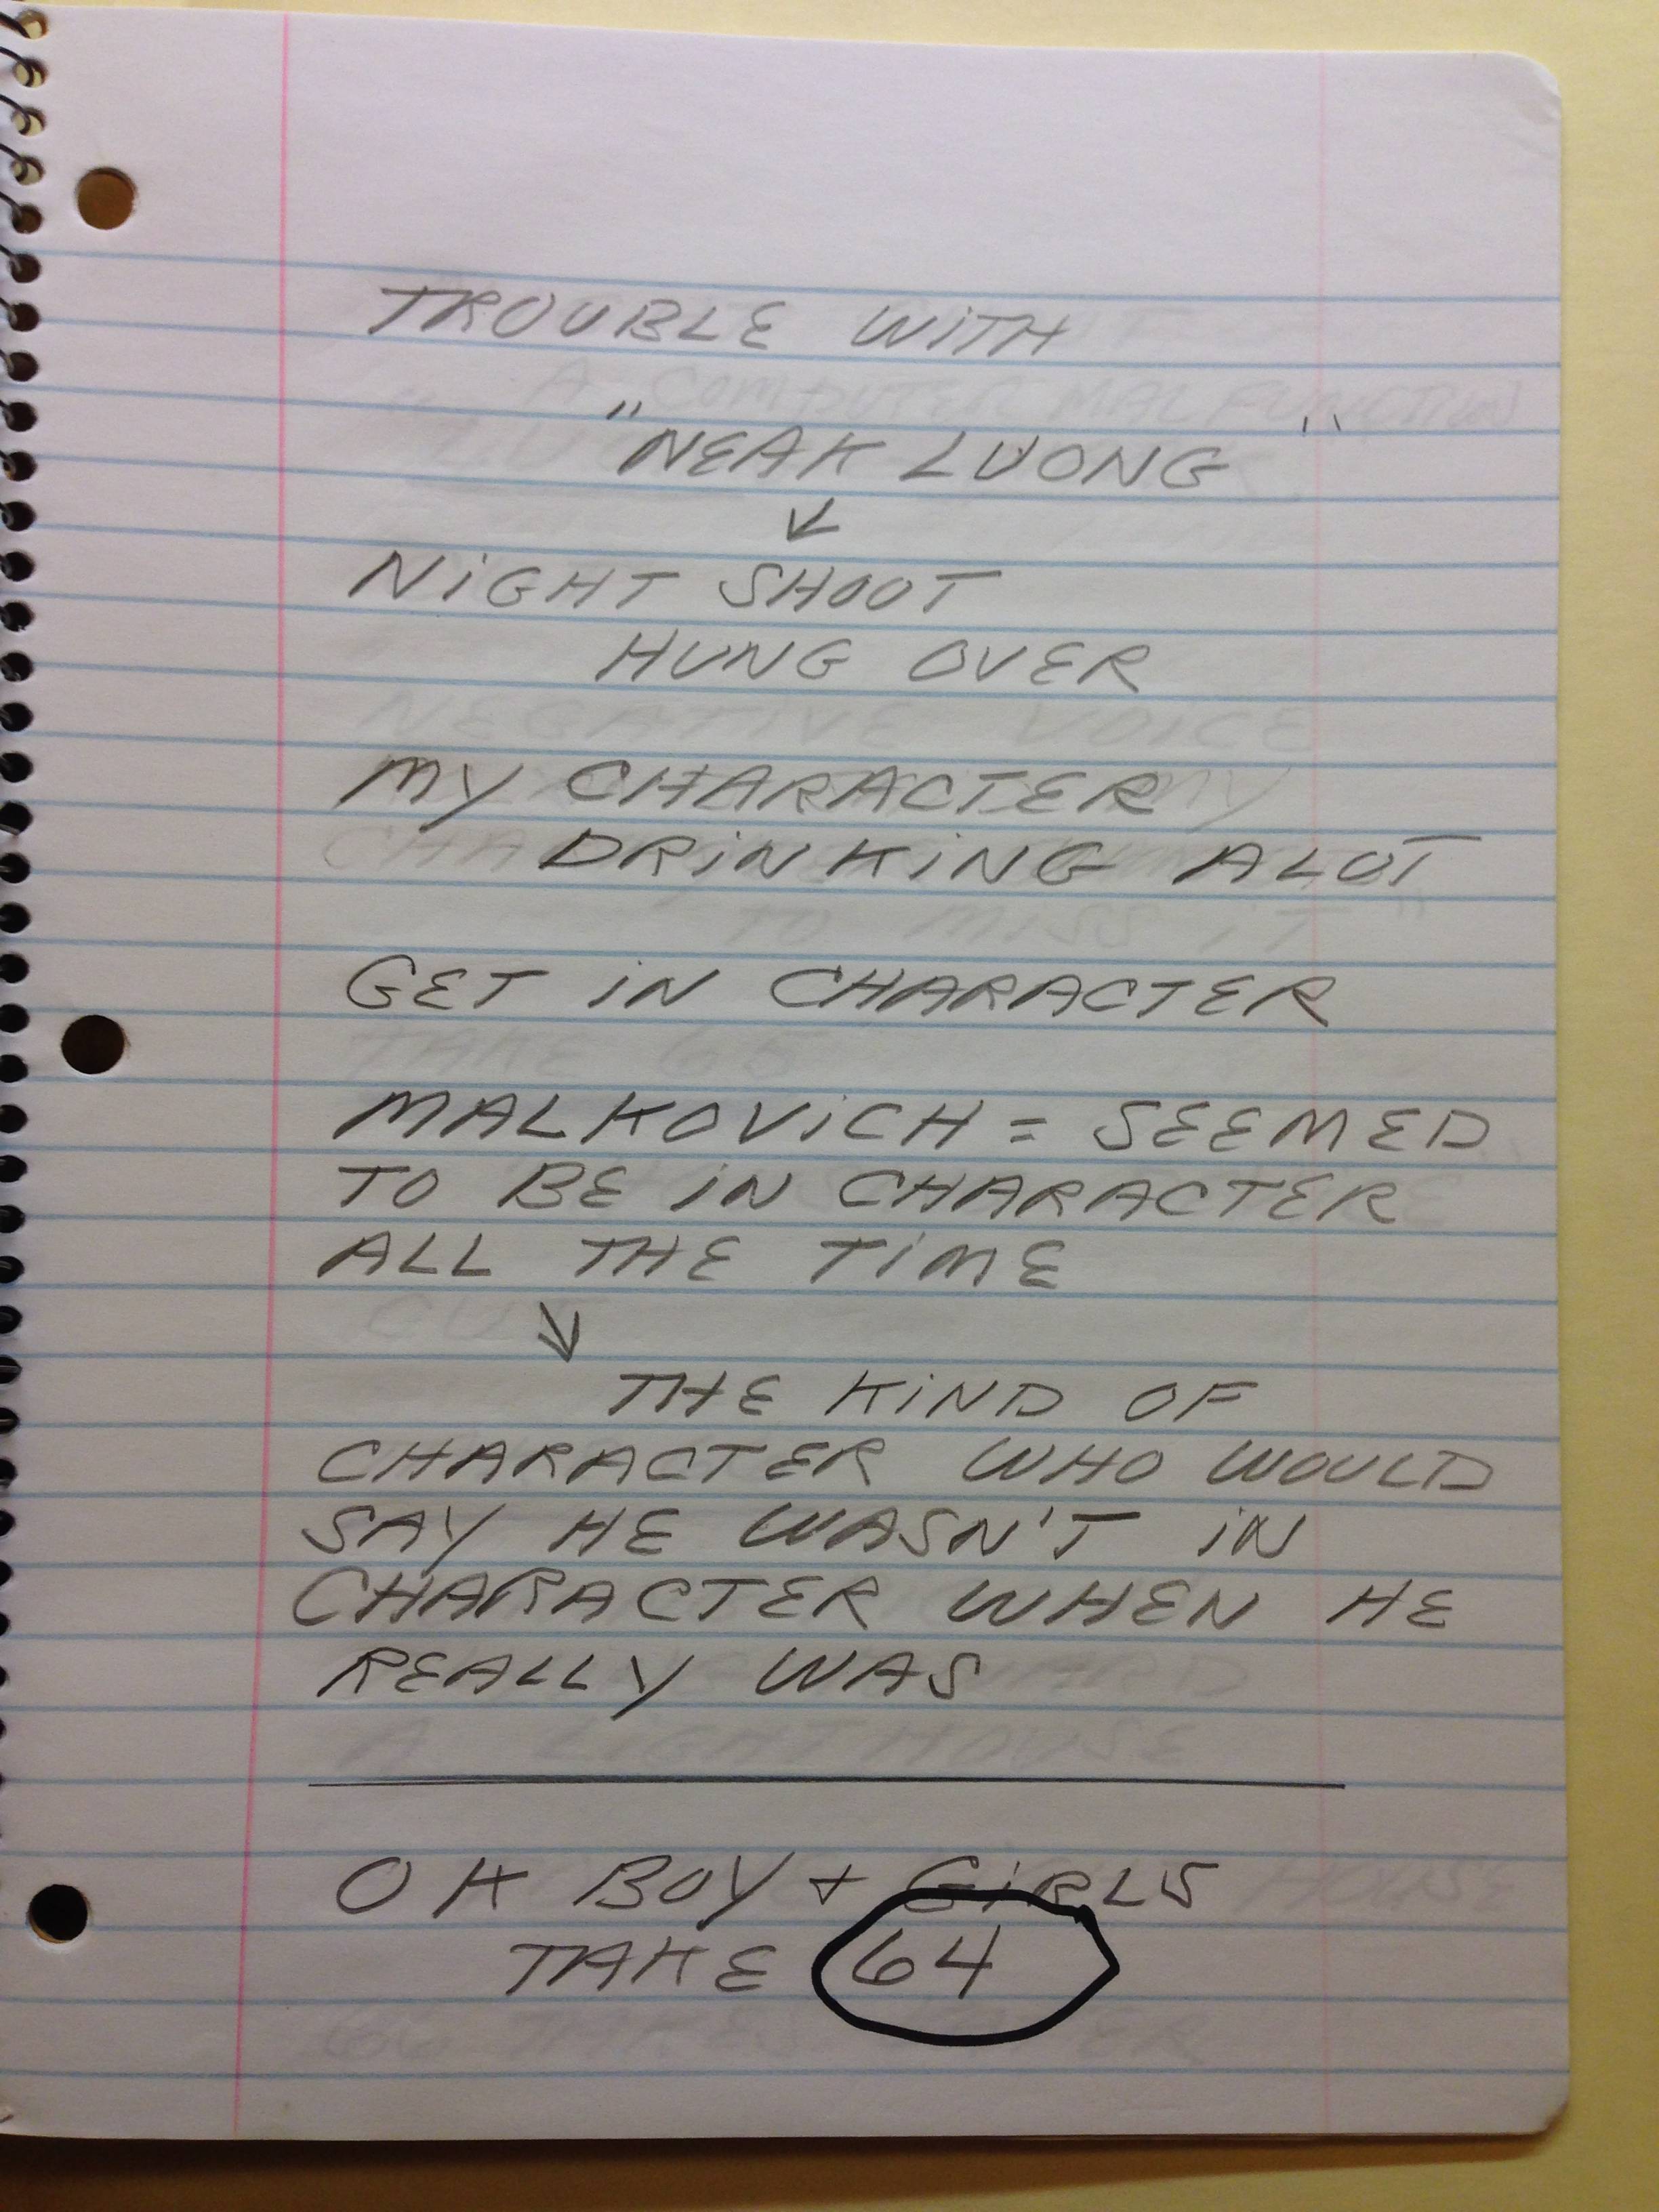 TROUBLE WITH
"NEAK LUONG"
NIGHT SHOOT
HUNG OVER
MY CHARACTER
DRINKING ALOT
GET IN CHARACTER
MALKOVICH = SEEMED
TO BE IN CHARACTER
ALL THE TIME
THE KIND OF
CHARACTER WHO WOULD
SAY HE WASN'T IN
CHARACTER WHEN HE
REALLY WAS
OK BOY + GIRLS
TAKE 64